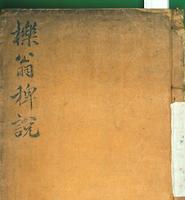 櫟翁稗說